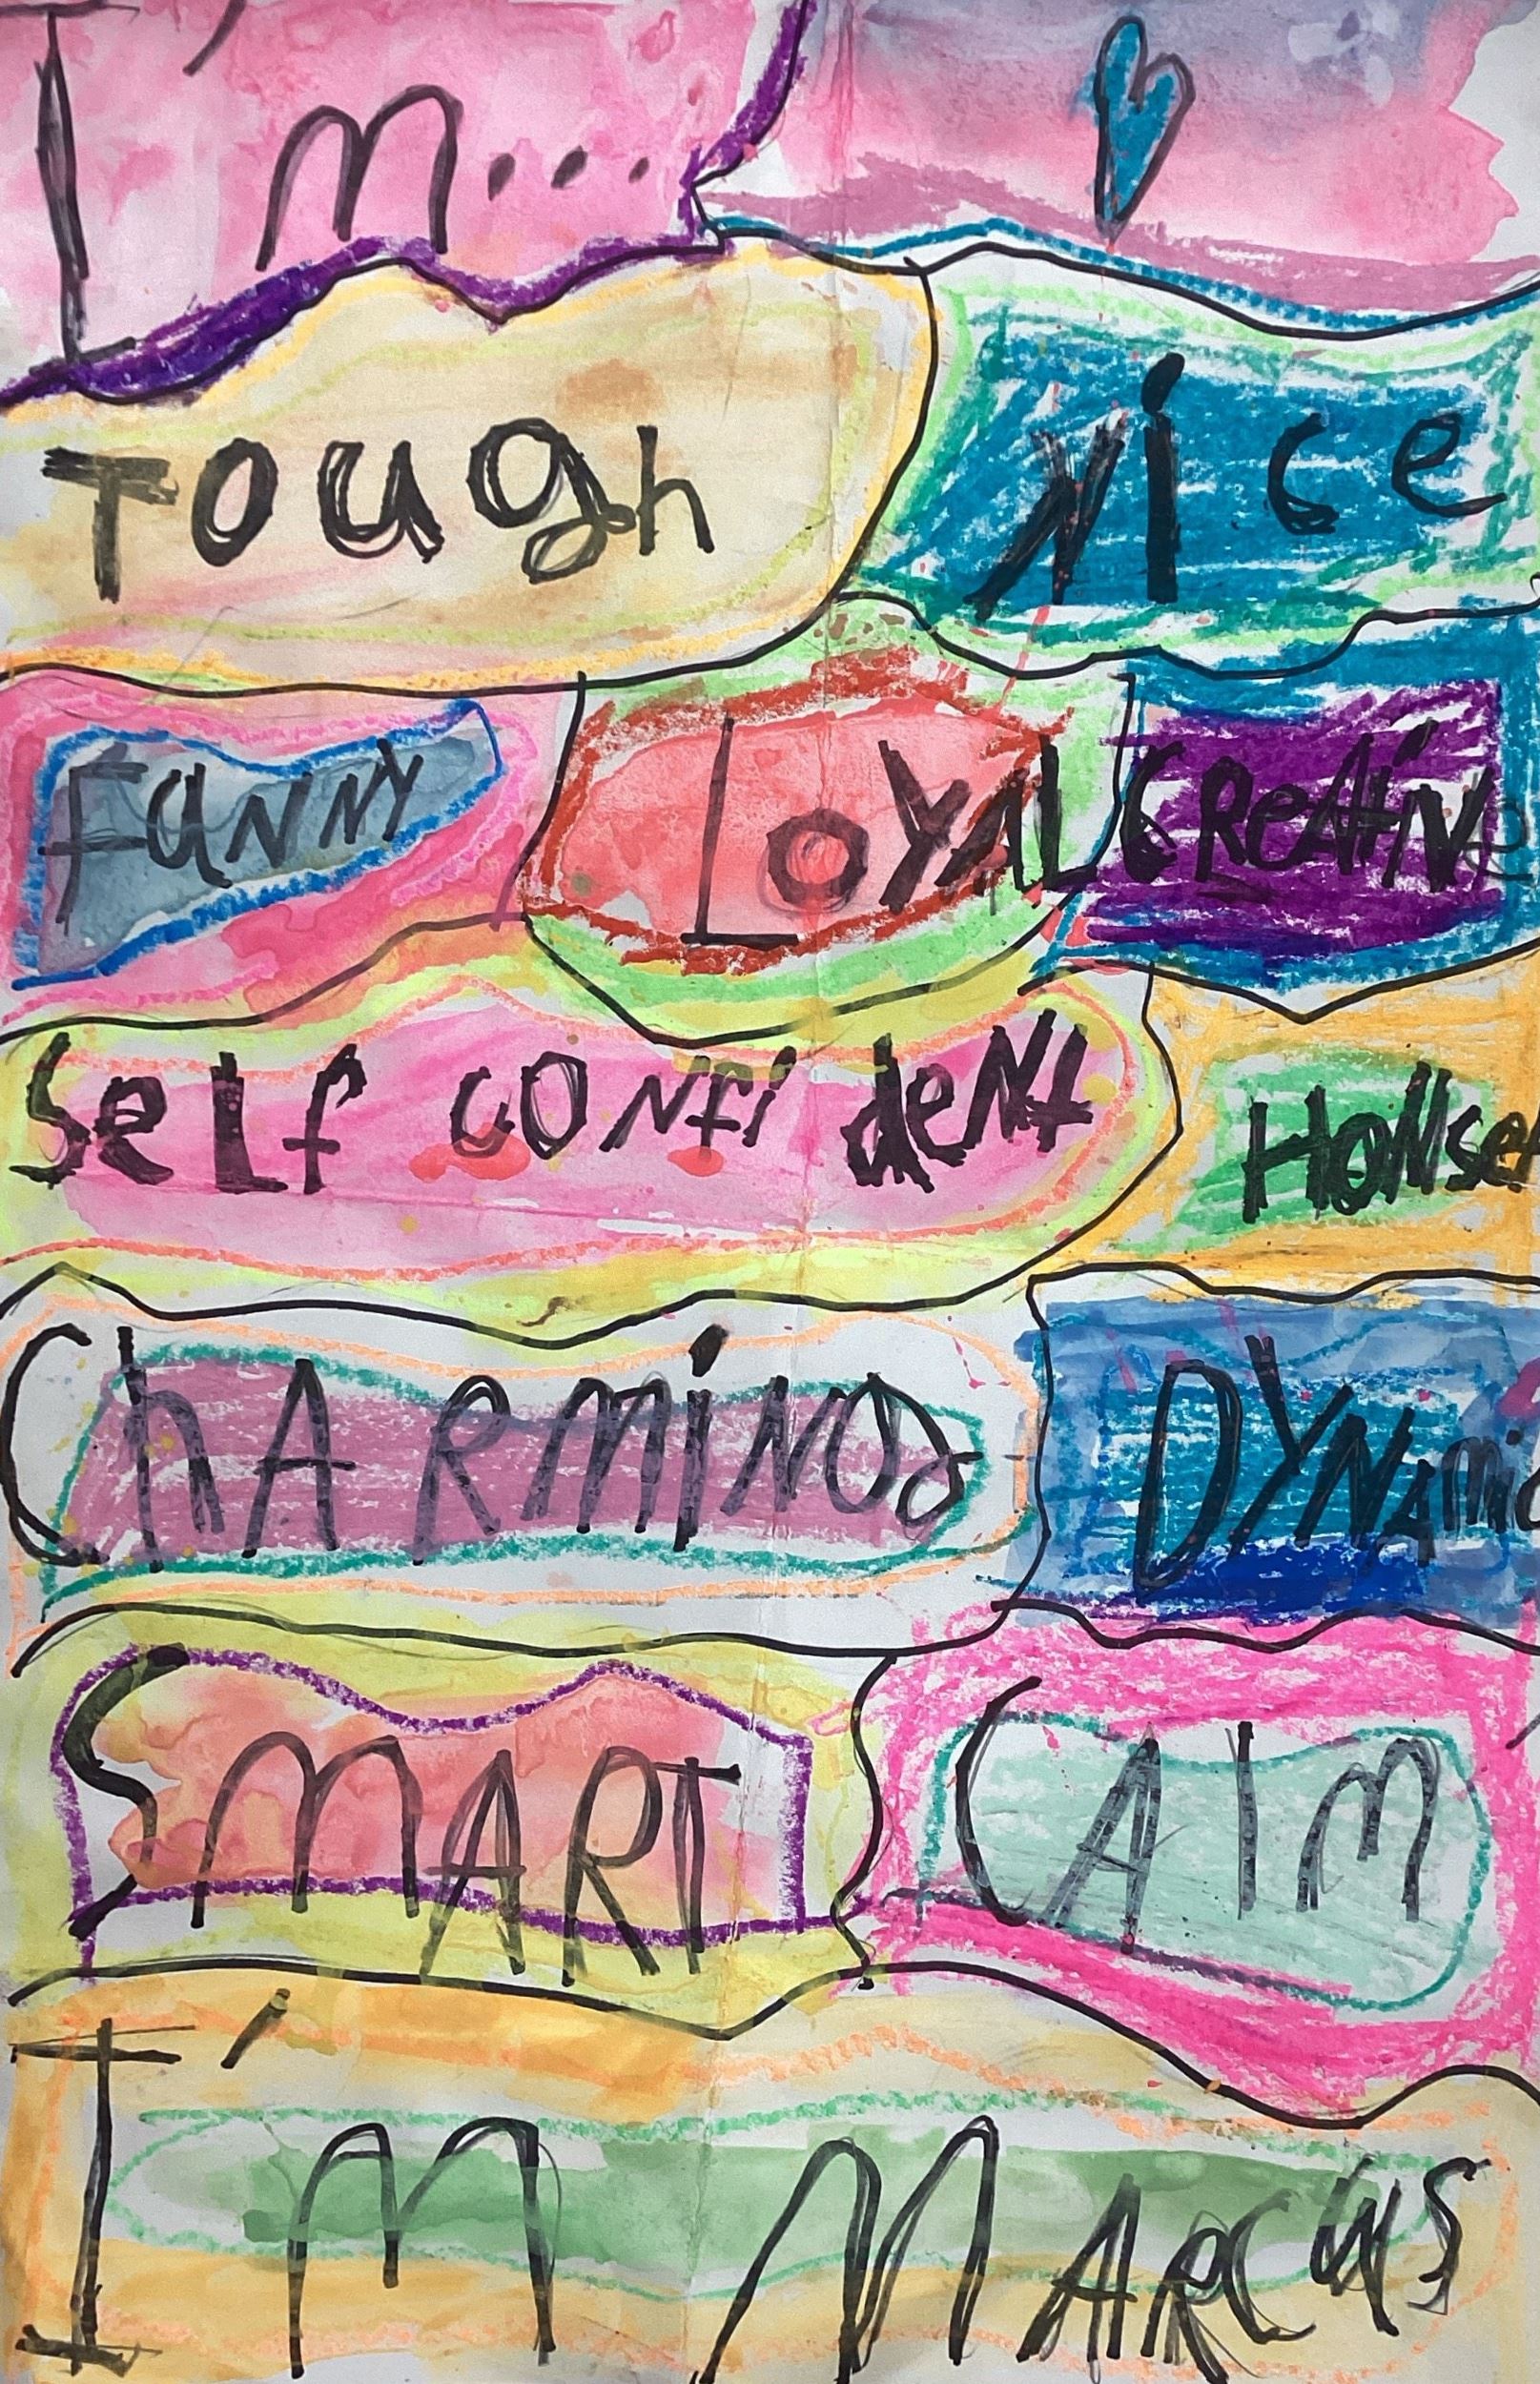 I'm...
Tough Nice
Funny Loyal Creative
Self confident Honse
Charming Dynamic
Smart Calm
I'm Marcus